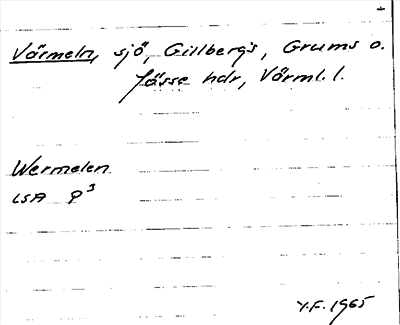 Värmeln, sjö, Gillbergs, Grums o.
Jösse hdr, Värml. l.
Wermelen
LSA P³
Y.F. 1965